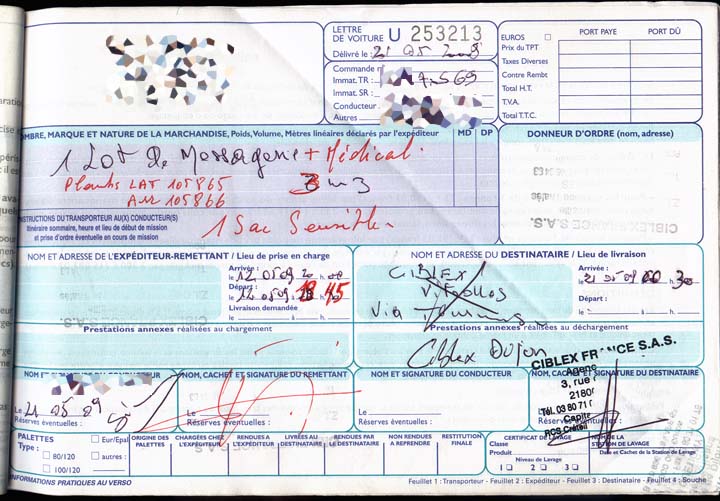 LETTRE
DE VOITURE U 253213
Délivré le : 21 05 2009
Commande n°
Immat. TR :
Immat. SR :
Conducteur :
Autres
EUROS
PORT PAYE PORT DÛ
Prix du TPT
Taxes Diverses
Contre Rembt
Total H.T.
T.V.A.
Total T.T.C.
OMBRE, MARQUE ET NATURE DE LA MARCHANDISE, Poids, Volume, Mètres linéaires déclarés par l'expéditeur MD DP
DONNEUR D'ORDRE (nom, adresse)
1 Lot de Messagerie + Médical.
Plombs LAT 105865
ARR 105866
3 m 3
INSTRUCTIONS DU TRANSPORTEUR AU(X) CONDUCTEUR(S)
Itinéraire sommaire, heure et lieu de début de mission
et prise d'ordre éventuelle en cours de mission
1 Sac Sensible.
NOM ET ADRESSE DE L'EXPÉDITEUR-REMETTANT / Lieu de prise en charge
NOM ET ADRESSE DU DESTINATAIRE / Lieu de livraison
Arrivée :
Départ :
45
Livraison demandée
Le à h.
CIBLEX
Vitrolles
Via
Arrivée :
Départ :
Le à h.
Prestations annexes réalisées au chargement
Prestations annexes réalisées au déchargement
Ciblex Dijon
CIBLEX FRANCE S.A.S.
Agence
3, rue
Tél. 03 80 71
Capital
RCS Créteil
NOM ET SIGNATURE DU CONDUCTEUR
Le 21 05 09
Réserves éventuelles :
NOM, CACHET ET SIGNATURE DU REMETTANT
Le
Réserves éventuelles :
NOM ET SIGNATURE DU CONDUCTEUR
Le
Réserves éventuelles :
NOM, CACHET ET SIGNATURE DU DESTINATAIRE
Le
Réserves éventuelles :
PALETTES
Type :
Eur/Epal
80/120
autres :
100/120
ORIGINE DES PALETTES
CHARGEES CHEZ L'EXPÉDITEUR
RENDUES A L'EXPÉDITEUR
LIVRÉES AU DESTINATAIRE
RENDUES PAR DESTINATAIRE
NON RENDUES A RENDRE
RESTITUTION FINALE
CERTIFICAT DE LAVAGE
Classe
Produit
Niveau de Lavage
1 2 3
NOM DE LA STATION DE LAVAGE
Date et Cachet de la Station de Lavage
INFORMATIONS PRATIQUES AU VERSO
Feuillet 1 : Transporteur - Feuillet 2 : Expéditeur - Feuillet 3 : Destinataire - Feuillet 4 : Souche